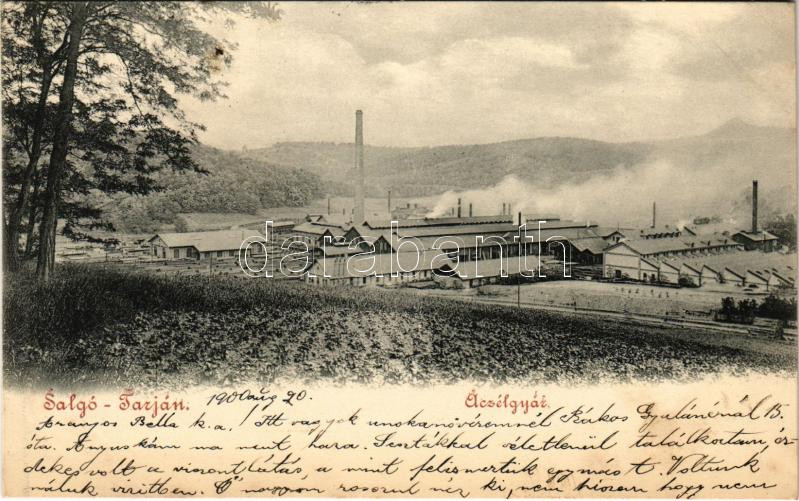 darabanth
Salgó - Tarján. 1900 aug 20. Aczélgyár.
Aranyos Bella k. a.! Itt vagyok unokanővéremnél Rákos Gyulánénál 15.
óta. Anyuskám ma ment haza. Sestákkal véletlenül találkoztam, ér-
dekes volt a viszontlátás, a mint felismertük egymást. Voltunk
náluk vizitben. Ő nagyon rosszul néz ki, nem hiszem hogy nem